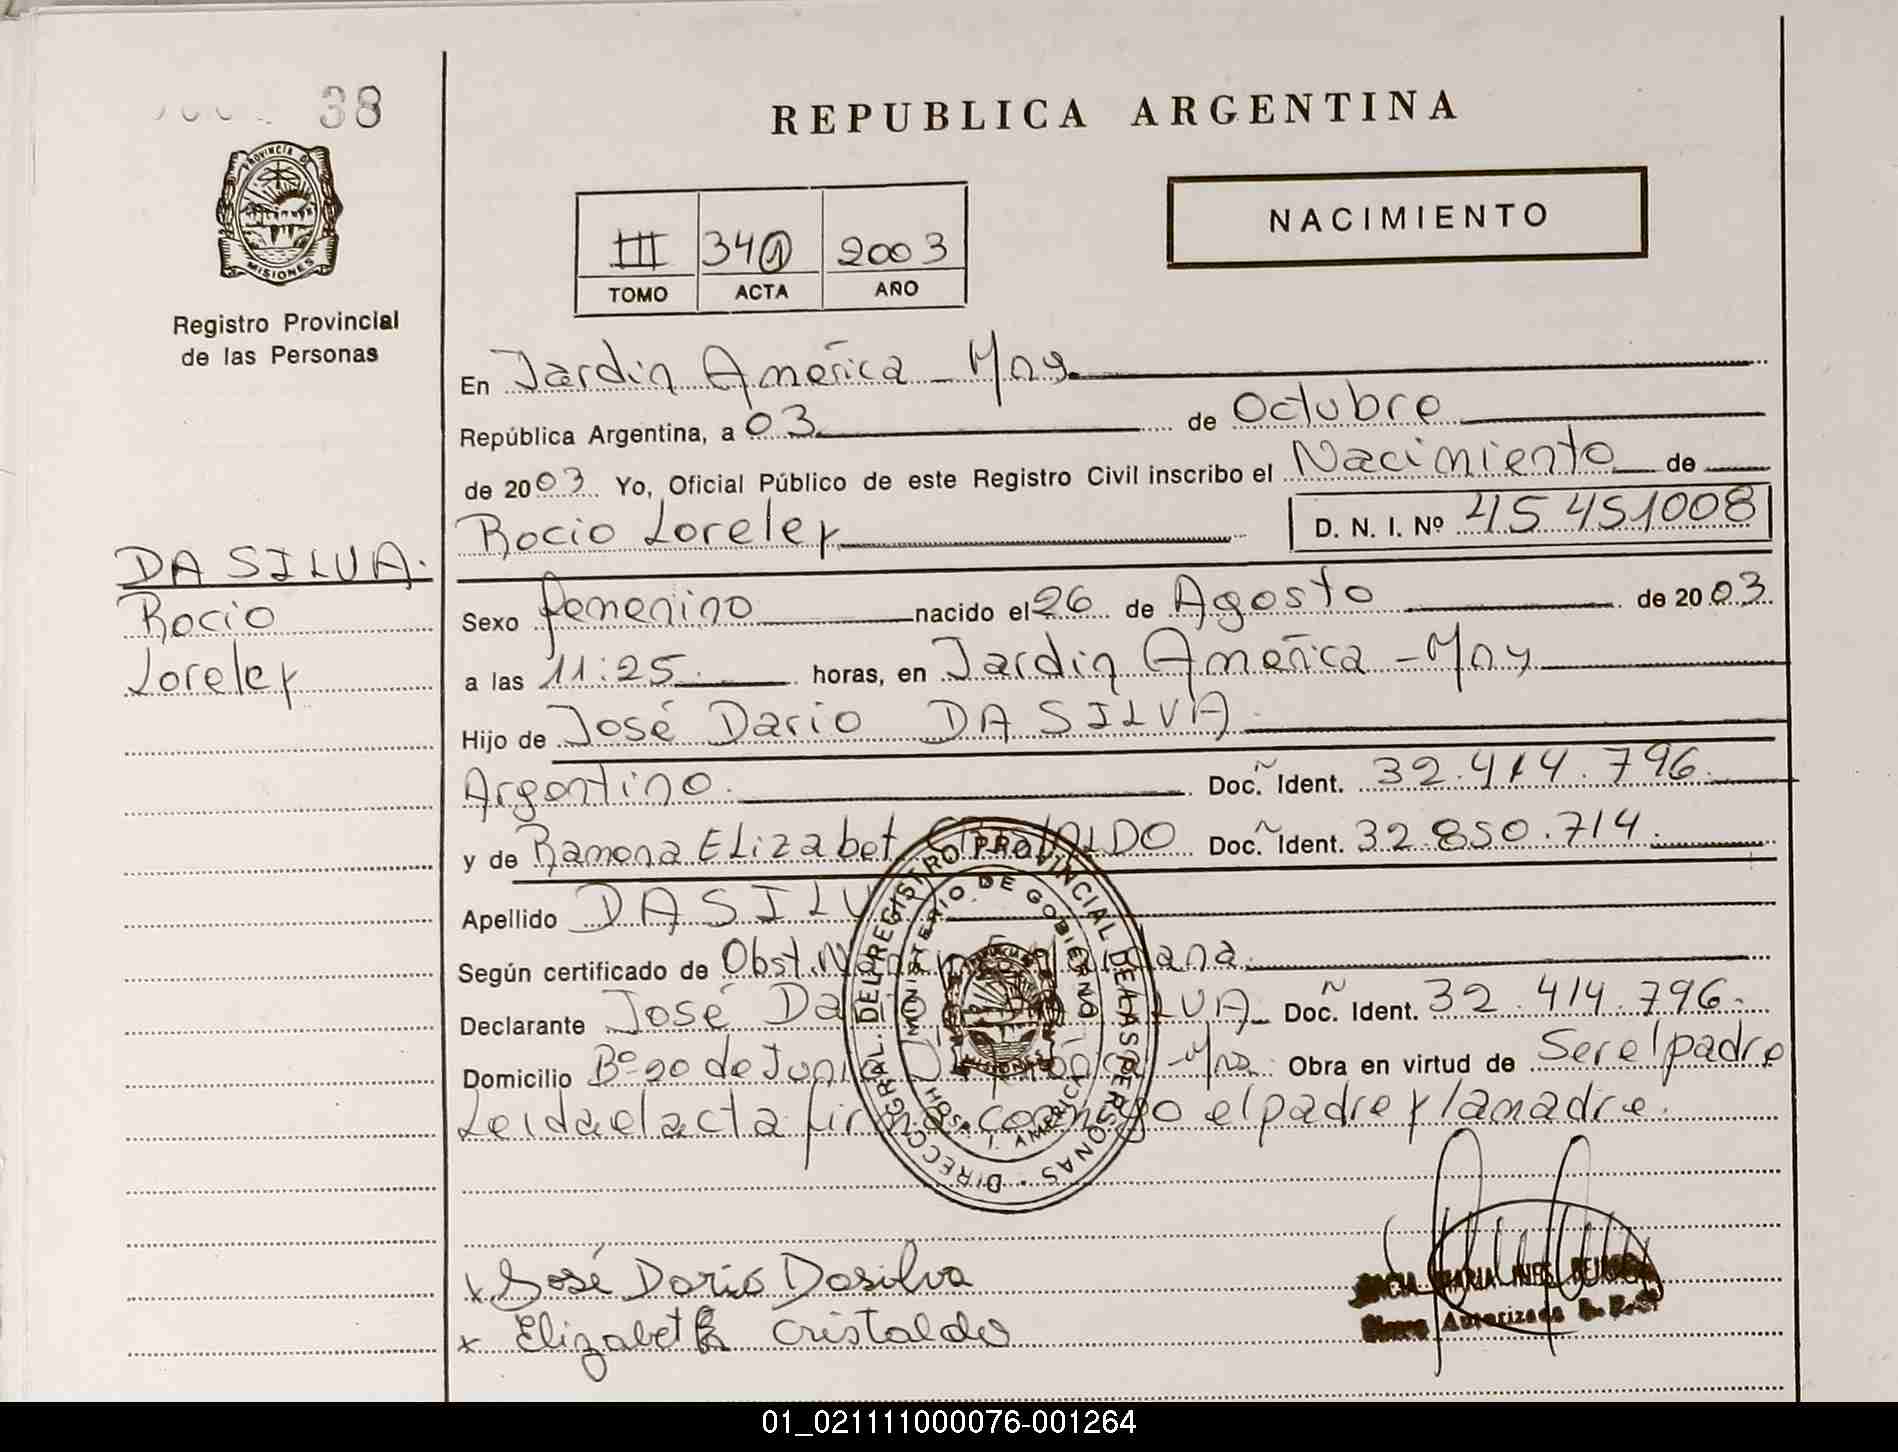 38
REPUBLICA ARGENTINA
PROVINCIA DE
MISIONES
Registro Provincial
de las Personas
III 341 2003
TOMO ACTA AÑO
NACIMIENTO
En Jardin América - Mns.
República Argentina, a 03 de Octubre
de 2003 Yo, Oficial Público de este Registro Civil inscribo el Nacimiento de
Rocio Loreley D. N. I. Nº 45 451008
DA SILVA.
Rocio
Loreley
Sexo femenino nacido el 26 de Agosto de 2003
a las 11:25 horas, en Jardin América - Mns
Hijo de José Dario DA SILVA
Argentino. Doc. Ident. 32.414.796.
y de Ramona Elizabet DO Doc. Ident. 32.850.714.
Apellido DA SILV
Según certificado de Obst.
Declarante José Da LVA Doc. Ident. 32.414.796.
Domicilio Bº 20 de Juni Mns. Obra en virtud de Ser el padre
Leida el acta firma conmigo el padre y la madre.
DIRECC. GRAL. DEL REGISTRO PROVINCIAL DE LAS PERSONAS
MINISTERIO DE GOBIERNO
MISIONES
HOSP. J. AMERICA
x José Dario Dasilva
x Elizabeth Cristaldo
MARIA INES
Autorizada
01_021111000076-001264